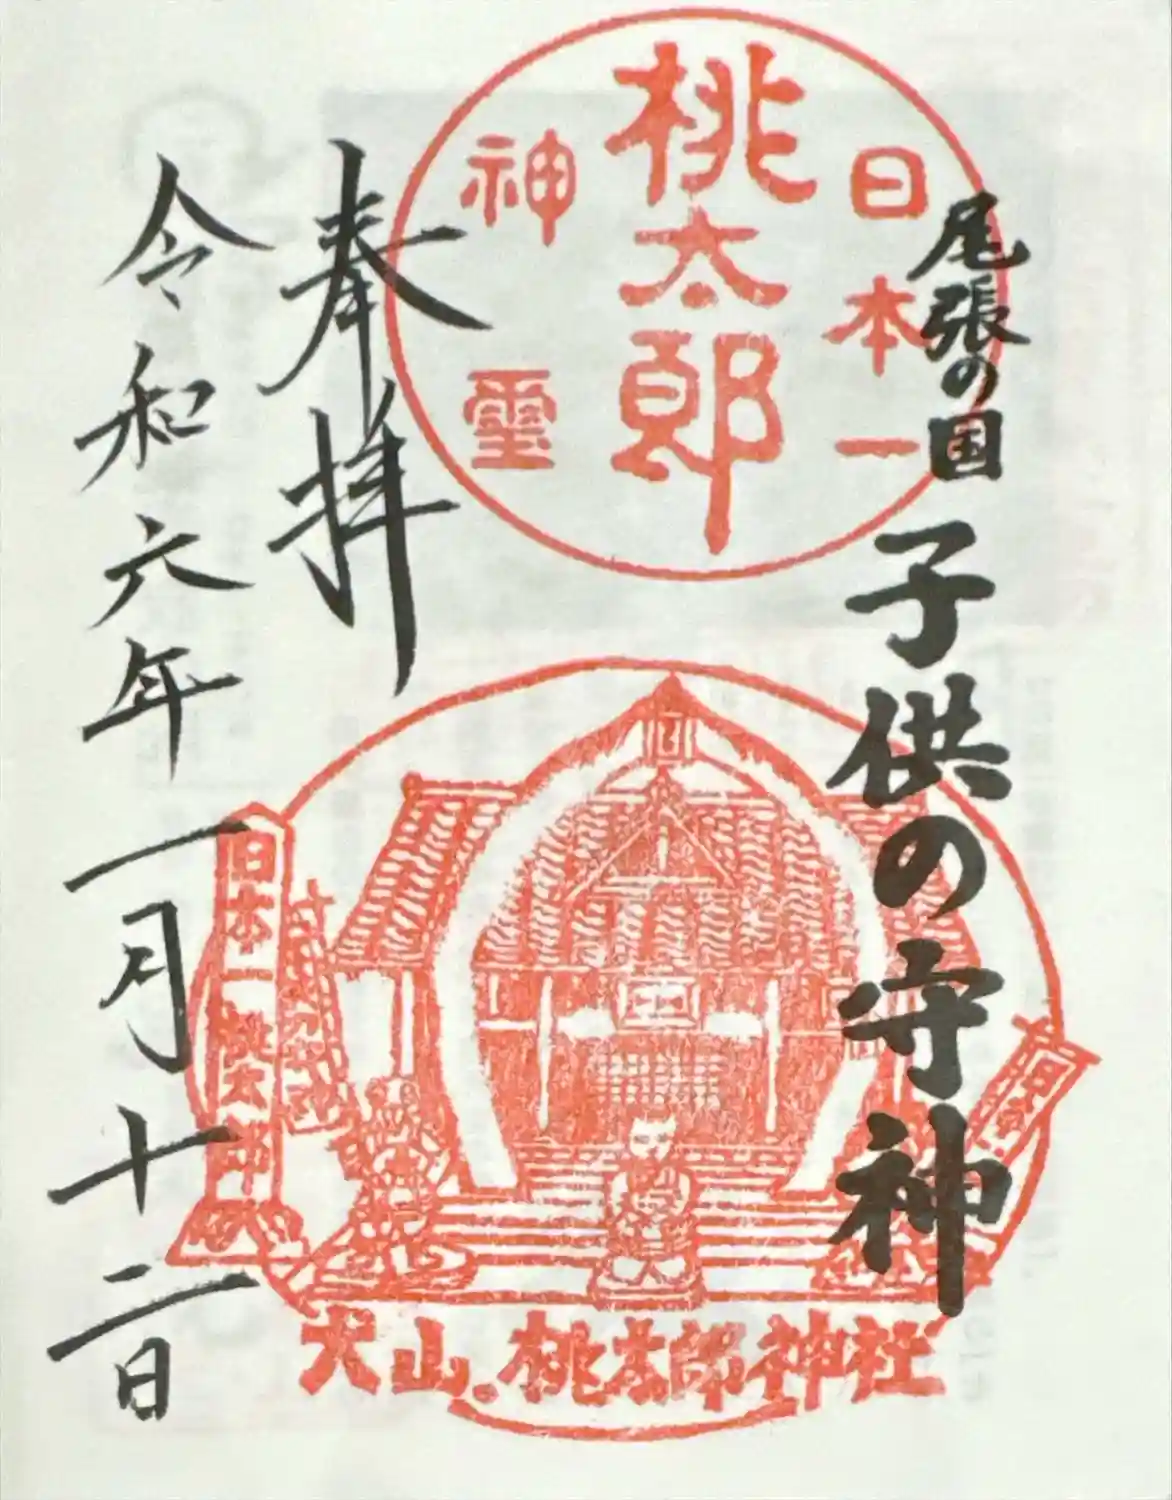 尾張の国
子供の守神
日本一
桃太郎
神霊
奉拝
令和六年一月十二日
日本一桃太郎
犬山、桃太郎神社